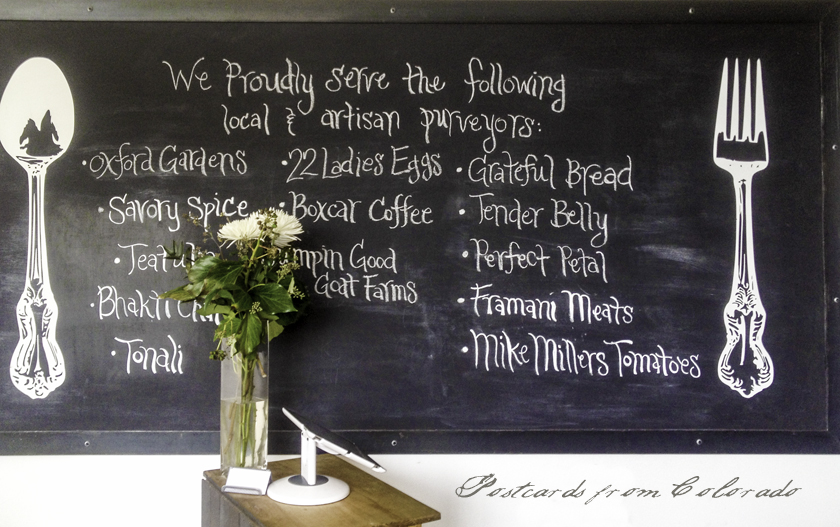 We Proudly serve the following
local & artisan purveyors:
•Oxford Gardens
•Savory Spice
•Teatu
•Bhakti Cha
•Tonali
•22 Ladies Eggs
•Boxcar Coffee
mpin Good
Goat Farms
•Grateful Bread
•Tender Belly
•Perfect Petal
•Framani Meats
•Mike Millers Tomatoes
Postcards from Colorado